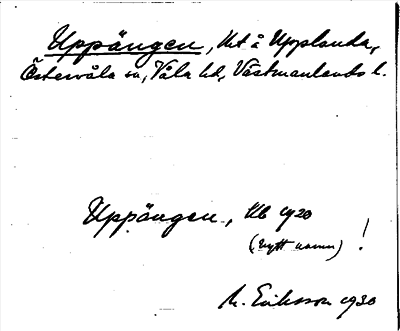 Uppängen, Ht å Upplanda,
Östervåla sn, Våla hd, Västmanlands l.
Uppängen, Kb 1920
(nytt namn) !
M. Eriksson 1930